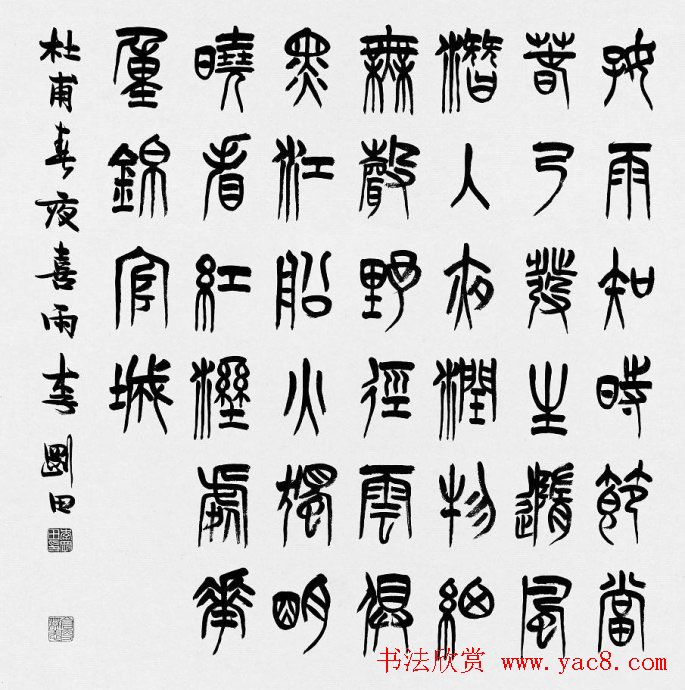 好雨知時節當
春乃發生隨風
潛入夜潤物細
無聲野徑雲俱
黑江船火獨明
曉看紅溼處華
重錦官城
杜甫春夜喜雨李剛田
书法欣赏 www.yac8.com